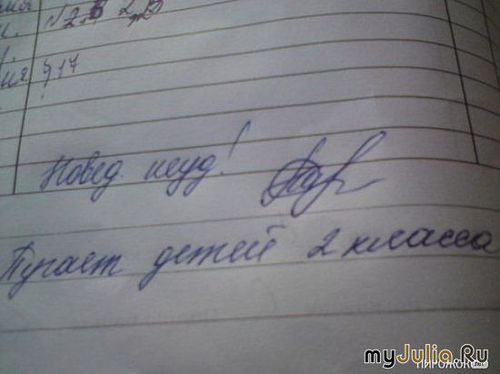 N 2.
§ 17
Повед. неуд!
Пугает детей 2 класса
myJulia.Ru